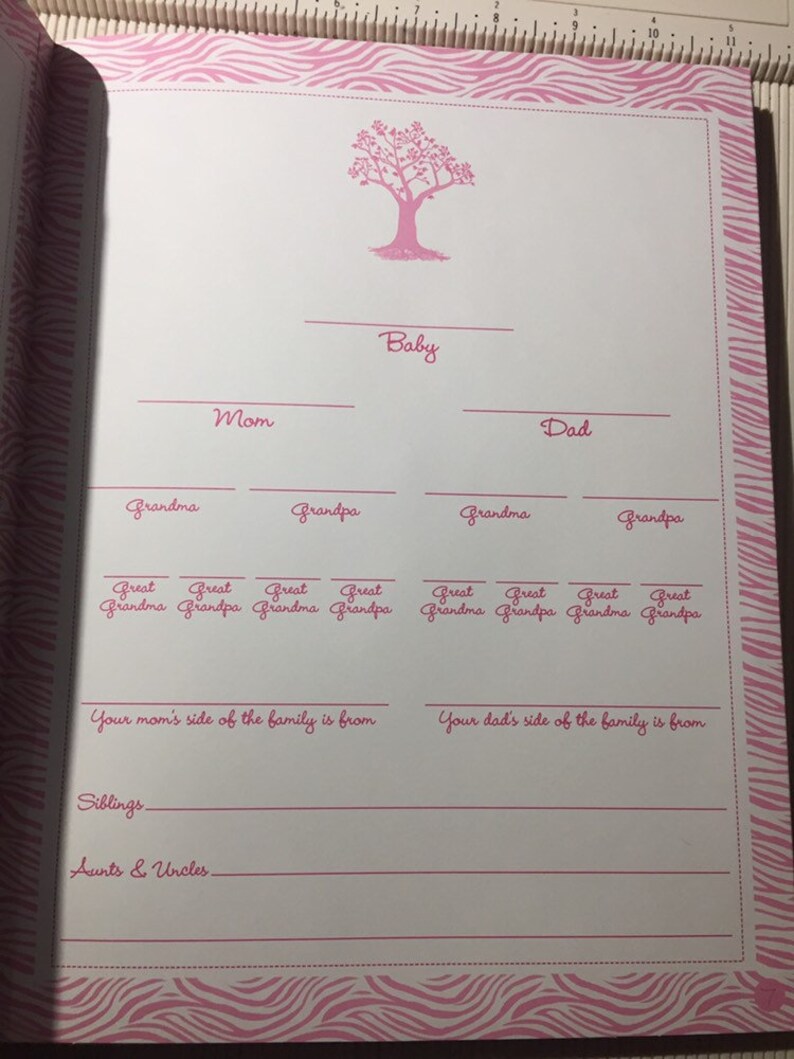 6 7 8 9 10 11
2 3 4 5
Baby
Mom Dad
Grandma Grandpa Grandma Grandpa
Great Great Great Great Great Great Great Great
Grandma Grandpa Grandma Grandpa Grandma Grandpa Grandma Grandpa
Your mom's side of the family is from Your dad's side of the family is from
Siblings
Aunts & Uncles
7